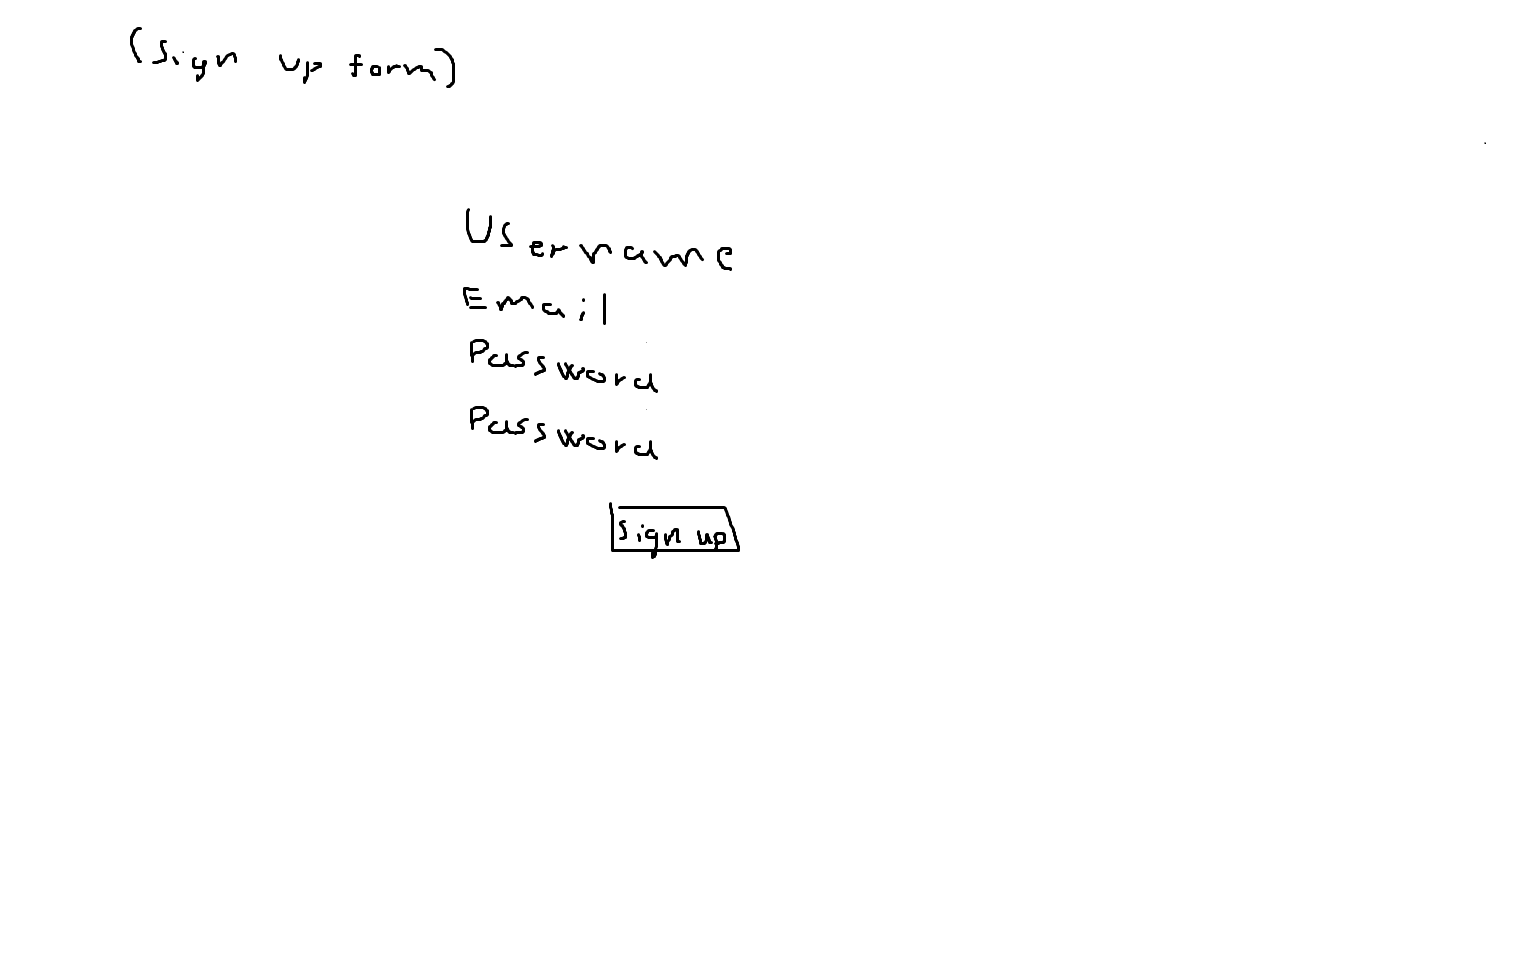 (Sign up form)
Username
Email
Password
Password
Sign up